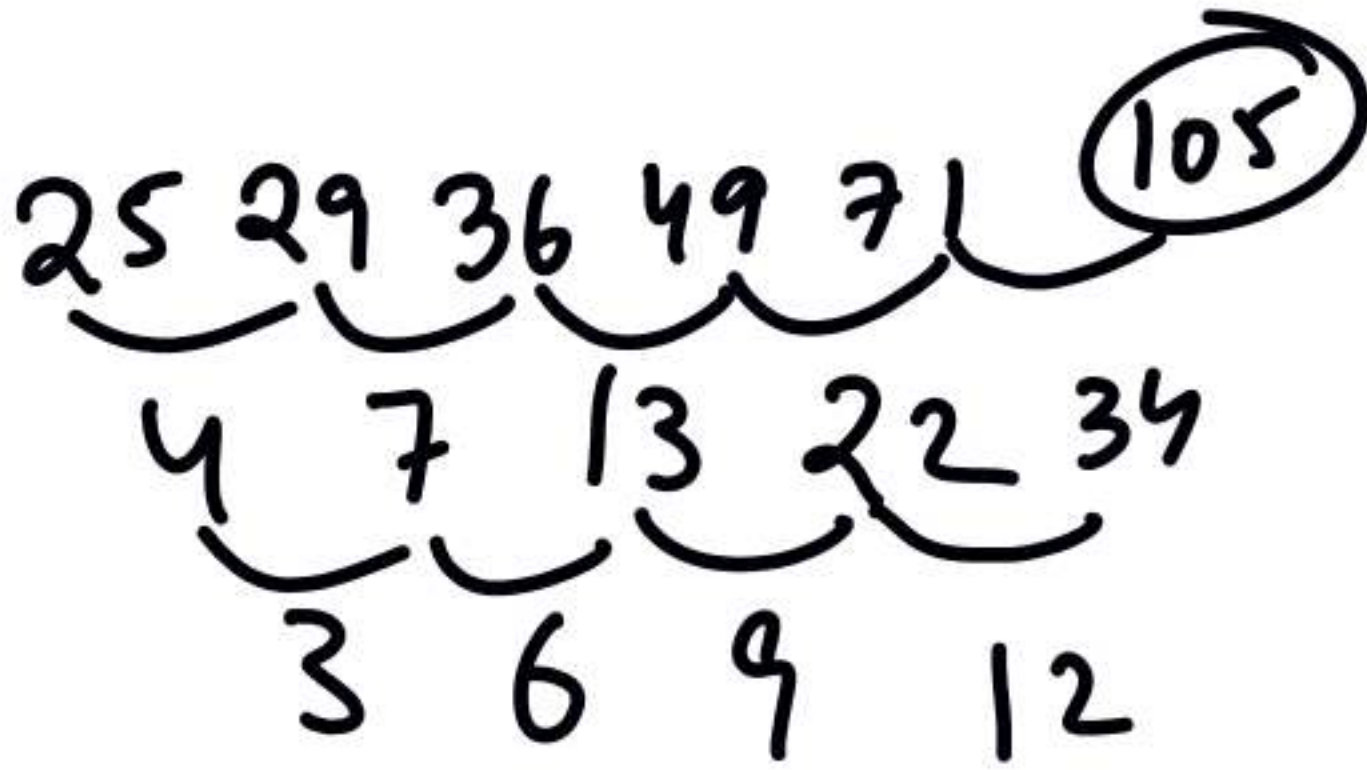 25 29 36 49 71 105
4 7 13 22 34
3 6 9 12